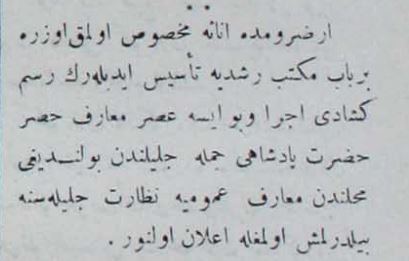 ارضرومده اناثه مخصوص اولمق اوزره
برباب مكتب رشديه تأسيس ايديله‌رك رسم
كشادى اجرا وبو ايسه عصر معارف حصر
حضرت پادشاهى جمله جليله‌سندن بولنديغى
محلندن معارف عموميه نظارت جليله‌سنه
بيلدرلمش اولمغله اعلان اولنور .